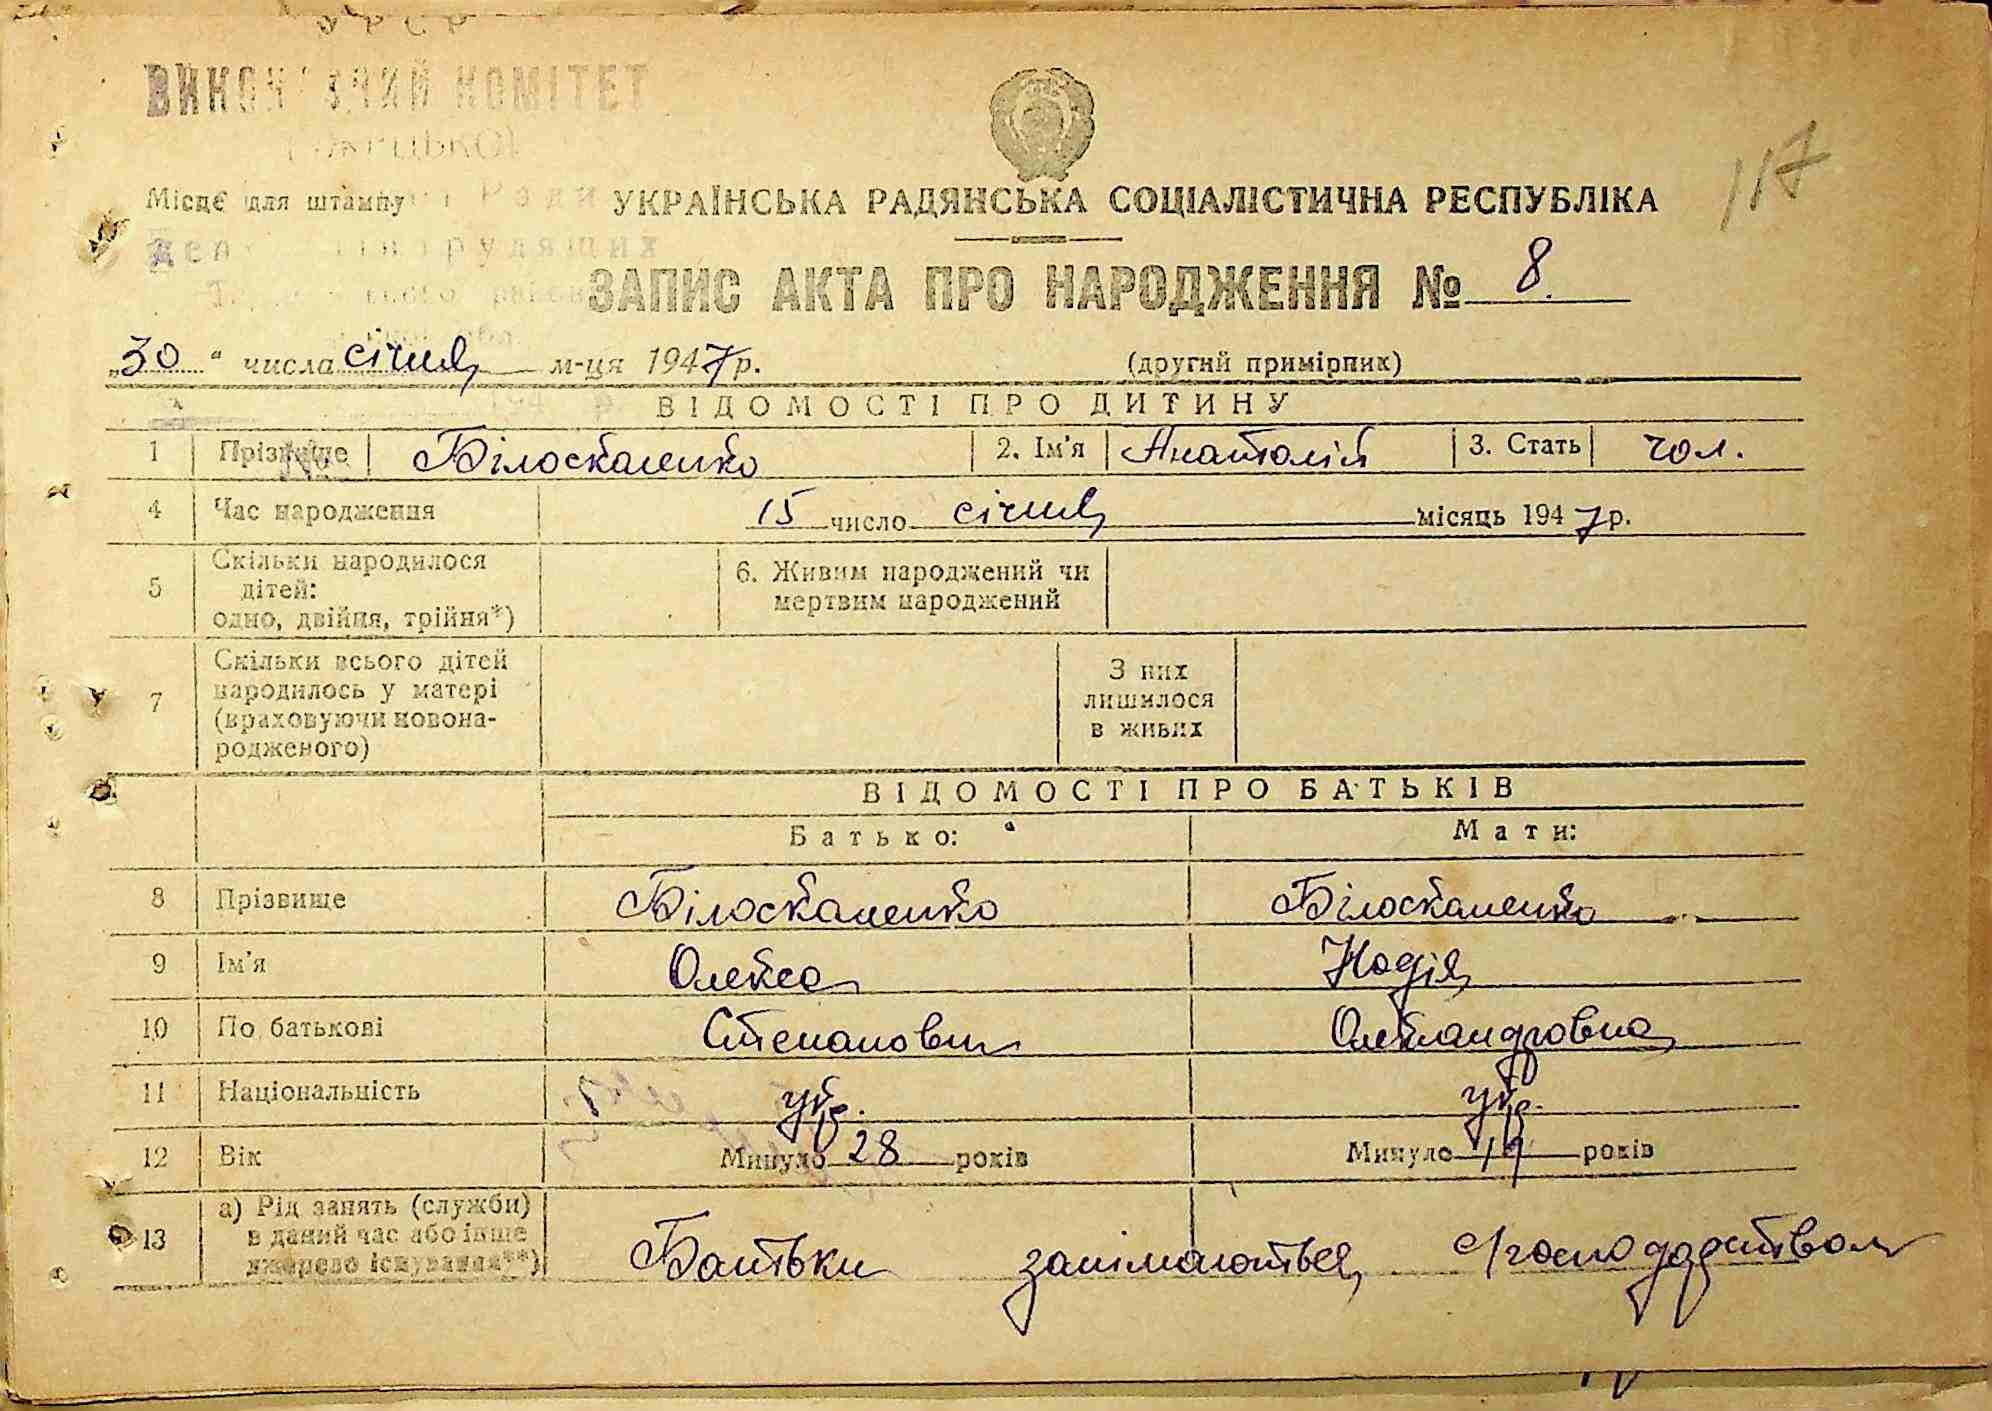 ВИКОН ЧИЙ КОМІТЕТ
117
Місце для штампу
УКРАЇНСЬКА РАДЯНСЬКА СОЦІАЛІСТИЧНА РЕСПУБЛІКА
ЗАПИС АКТА ПРО НАРОДЖЕННЯ № 8.
„30“ числа січня м-ця 1947 р.
(другий примірник)
ВІДОМОСТІ ПРО ДИТИНУ
1 Прізвище Білоскаленко 2. Ім'я Анатолій 3. Стать чол.
4 Час народження 15 число січня місяць 1947 р.
5 Скільки народилося
дітей:
одно, двійня, трійня*)
6. Живим народжений чи
мертвим народжений
7 Скільки всього дітей
народилось у матері
(враховуючи новона-
родженого)
З них
лишилося
в живих
ВІДОМОСТІ ПРО БАТЬКІВ
Батько: Мати:
8 Прізвище Білоскаленко Білоскаленко
9 Ім'я Олекса Надія
10 По батькові Степанович Олександровна
11 Національність укр. укр.
12 Вік Минуло 28 років Минуло 19 років
13 а) Рід занять (служби)
в даний час або інше
джерело існування**)
Батьки занімаються с/господарством